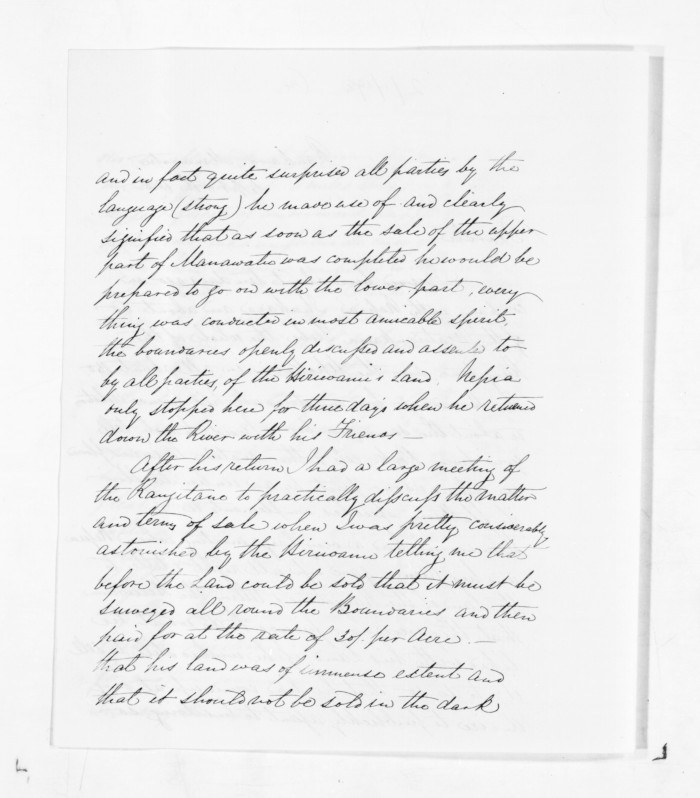 and in fact quite surprised all parties by the
language (strong) he made use of and clearly
signified that as soon as the sale of the upper
part of Manawatu was completed he would be
prepared to go on with the lower part, every
thing was conducted in most amicable spirit,
the boundaries openly discussed and assente to
by all parties, of the Hiriwanu's Land. Nepia
only stopped here for three days when he returned
down the River with his Friends —
After his return I had a large meeting of
the Rangitane to practically disscuss the matter
and terms of sale when I was pretty considerably
astonished by the Hiriwanu telling me that
before the Land could be sold that it must be
surveyed all round the Boundaries and then
paid for at the rate of 30/. per Acre. —
that his land was of immense extent and
that it should not be sold in the dark